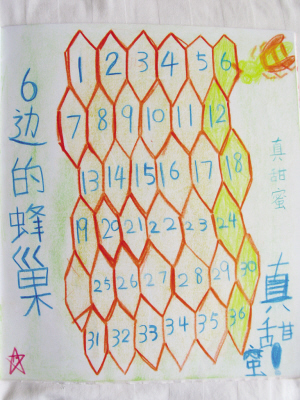 6边的蜂巢
1 2 3 4 5 6
7 8 9 10 11 12
13 14 15 16 17 18
19 20 21 22 23 24
25 26 27 28 29 30
31 32 33 34 35 36
真甜蜜
真甜蜜!